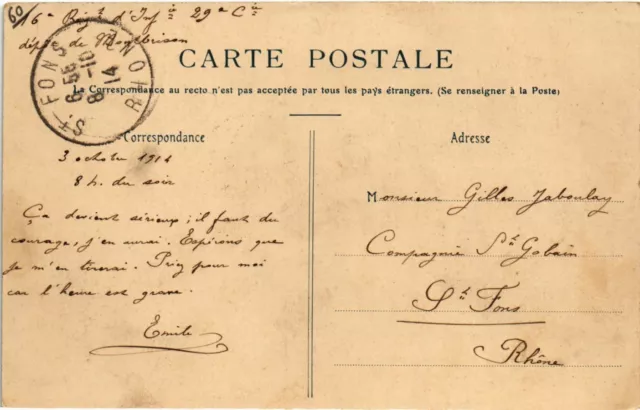 60/
16e Rgt d'Infie 29e Cie
dépôt de Montbrison
ST FONS RHONE
6-55
8-10
14
CARTE POSTALE
La Correspondance au recto n'est pas acceptée par tous les pays étrangers. (Se renseigner à la Poste)
Correspondance
3 octobre 1914
8 h. du soir
Ça devient sérieux; il faut du
courage, j'en aurai. Espérons que
je m'en tirerai. Priez pour moi
car l'heure est grave.
Emile
Adresse
Monsieur Gilles Jaboulay
Compagnie St Gobain
St Fons
Rhône